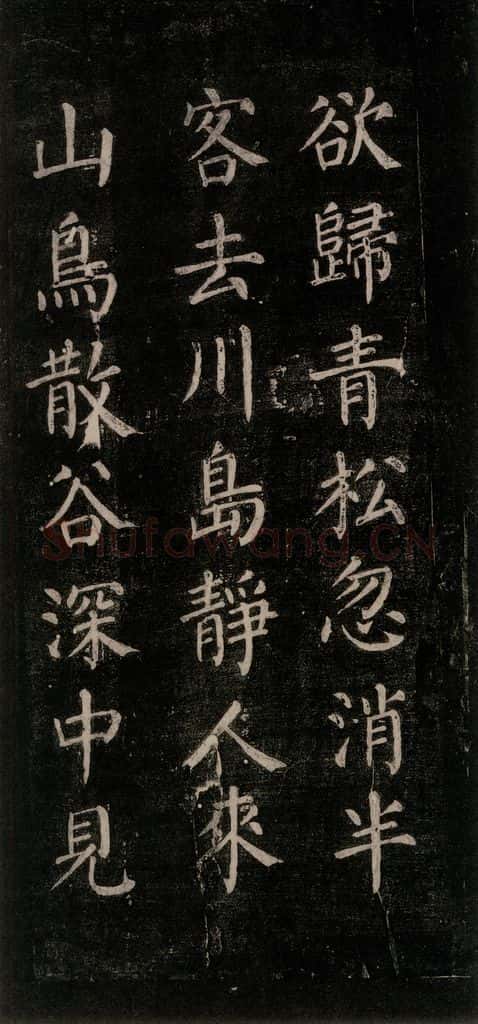 欲歸青松忽消半
客去川島靜人來
山鳥散谷深中見
Shufawang.CN